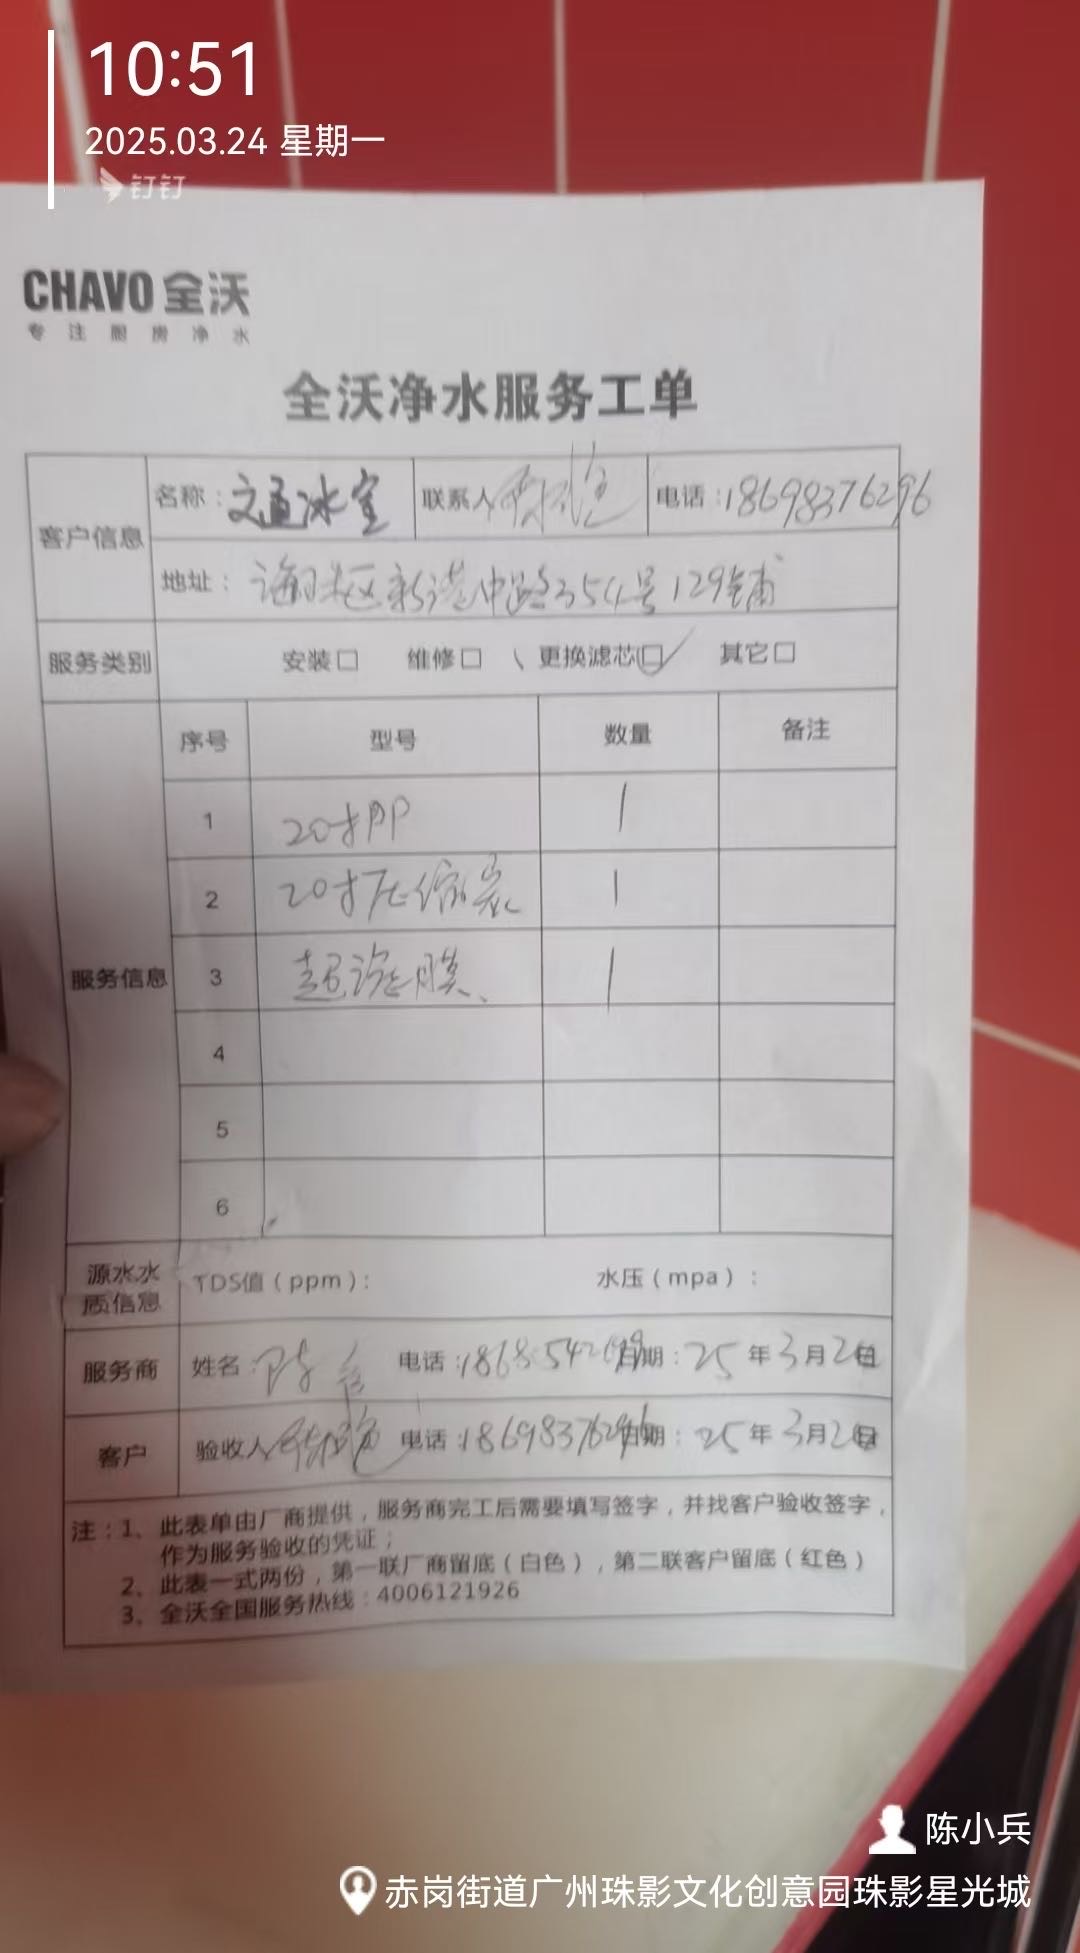 10:51
2025.03.24 星期一
钉钉
CHAVO 全沃
专注厨房净水
全沃净水服务工单
客户信息
名称：交通冰室 联系人 电话：18698376296
地址：海珠区新港中路354号129铺
服务类别 安装□ 维修□ 更换滤芯□ 其它□
服务信息
序号 型号 数量 备注
1 20寸PP 1
2 20寸压缩炭 1
3 超滤膜 1
4
5
6
源水水质信息 TDS值（ppm）： 水压（mpa）：
服务商 姓名： 电话： 日期：25年3月 日
客户 验收人 电话：18698376296 日期：25年3月 日
注：1、此表单由厂商提供，服务商完工后需要填写签字，并找客户验收签字，
作为服务验收的凭证；
2、此表一式两份，第一联厂商留底（白色），第二联客户留底（红色）
3、全沃全国服务热线：4006121926
陈小兵
赤岗街道广州珠影文化创意园珠影星光城